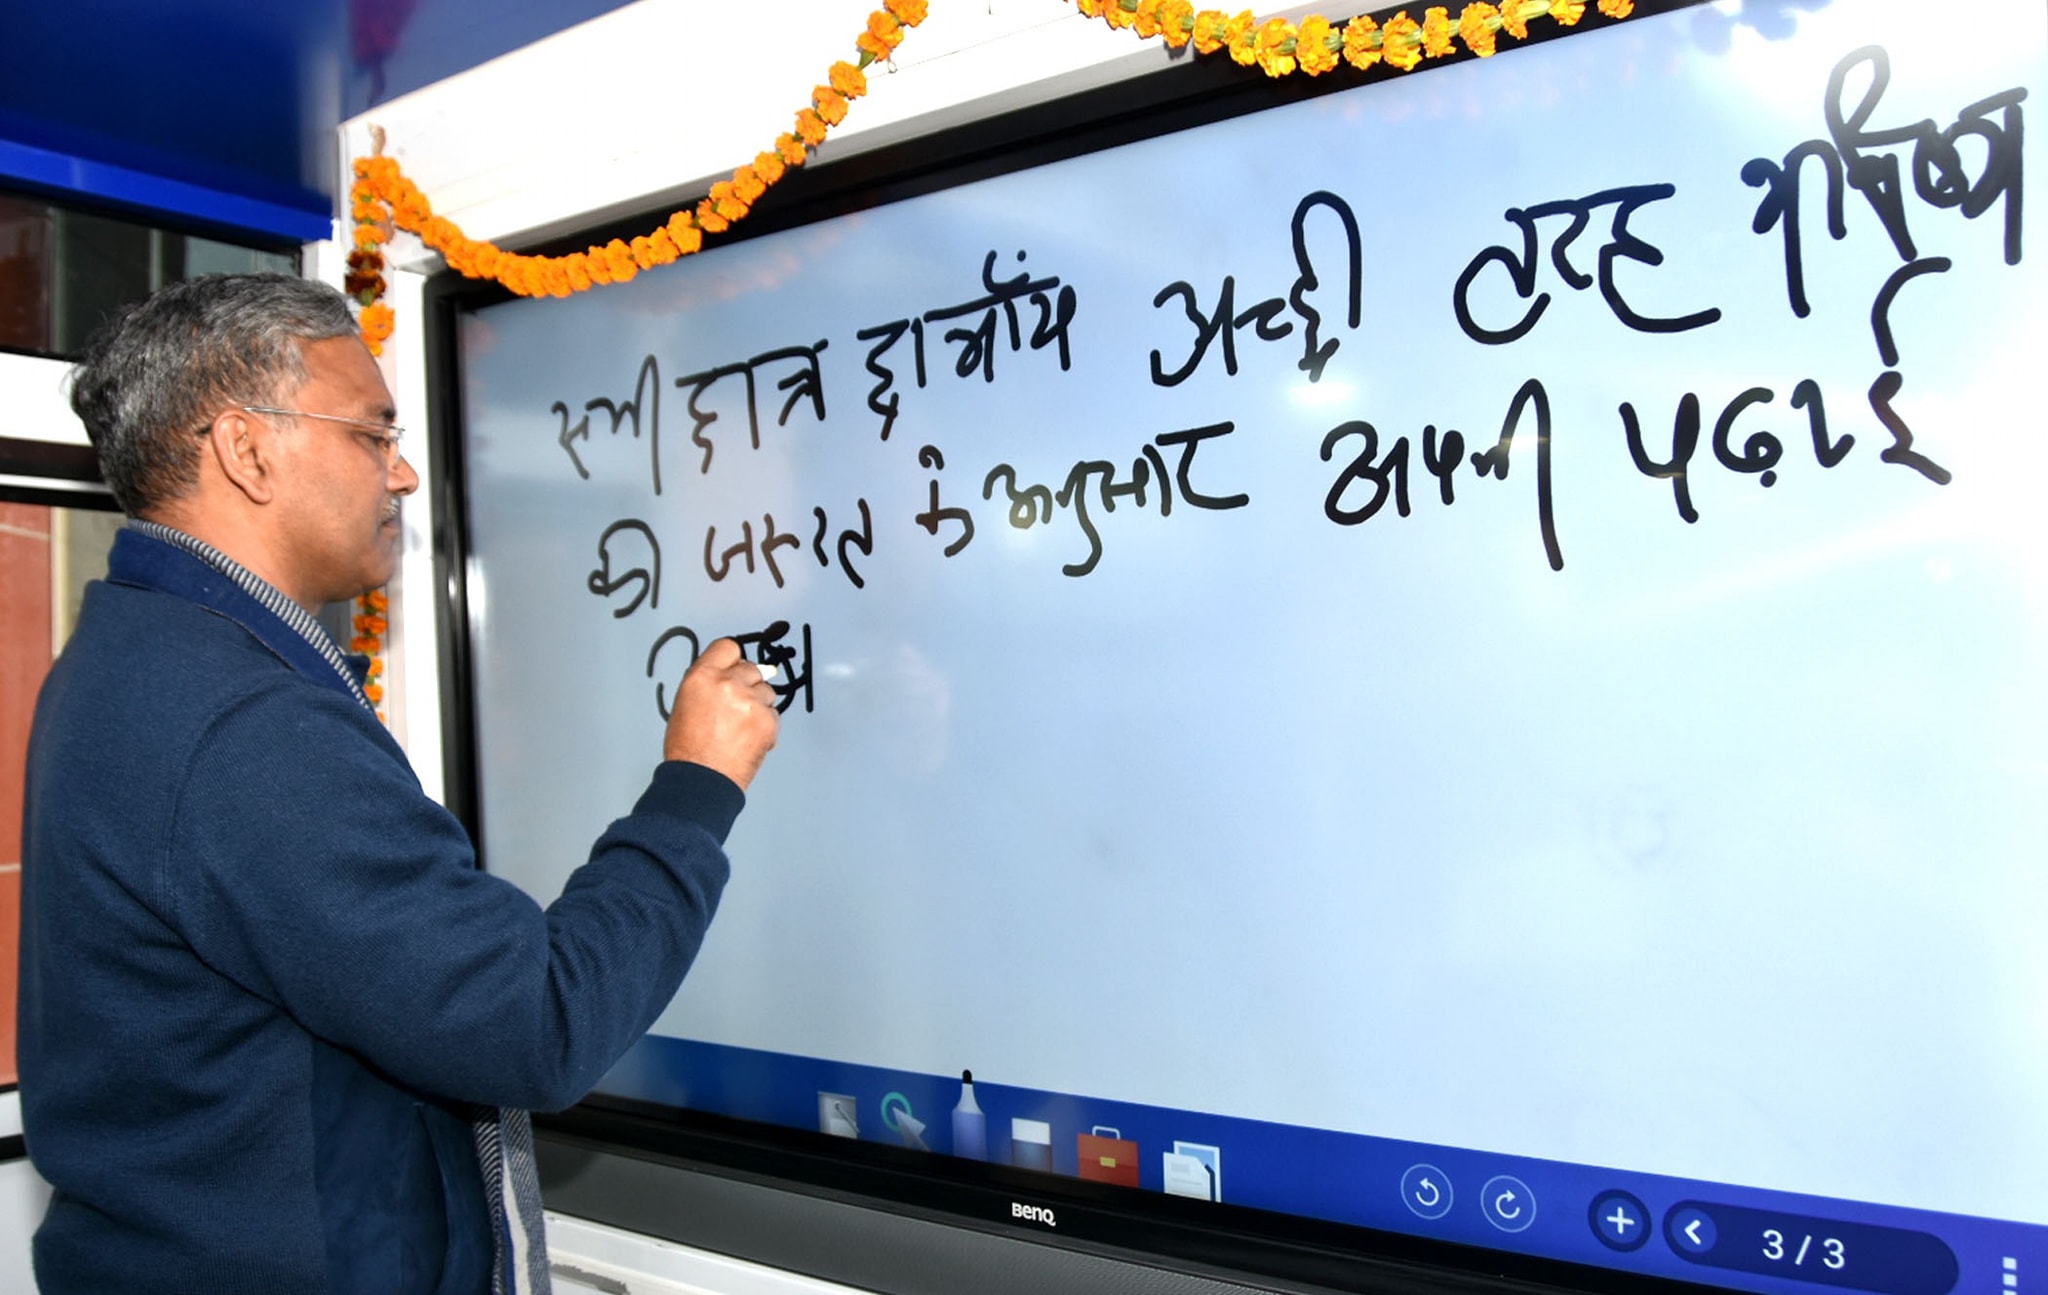 सभी छात्र छात्राऐं अच्छी तरह भविष्य
की जरूरत के अनुसार अपनी पढ़ाई
BenQ
3 / 3